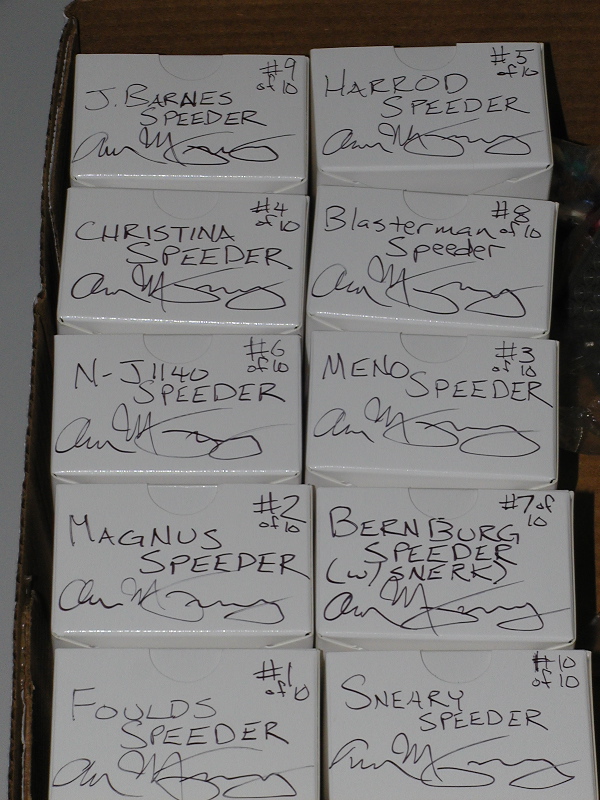 J. BARNES #9
SPEEDER of 10
HARROD #5
SPEEDER of 10
CHRISTINA #4
SPEEDER of 10
Blasterman #8
Speeder of 10
N-J1140 #6
SPEEDER of 10
MENO #3
SPEEDER of 10
MAGNUS #2
SPEEDER of 10
BERNBURG #7 of
SPEEDER 10
(W/SNERK)
FOULDS #1
SPEEDER of 10
SNEARY #10
SPEEDER of 10